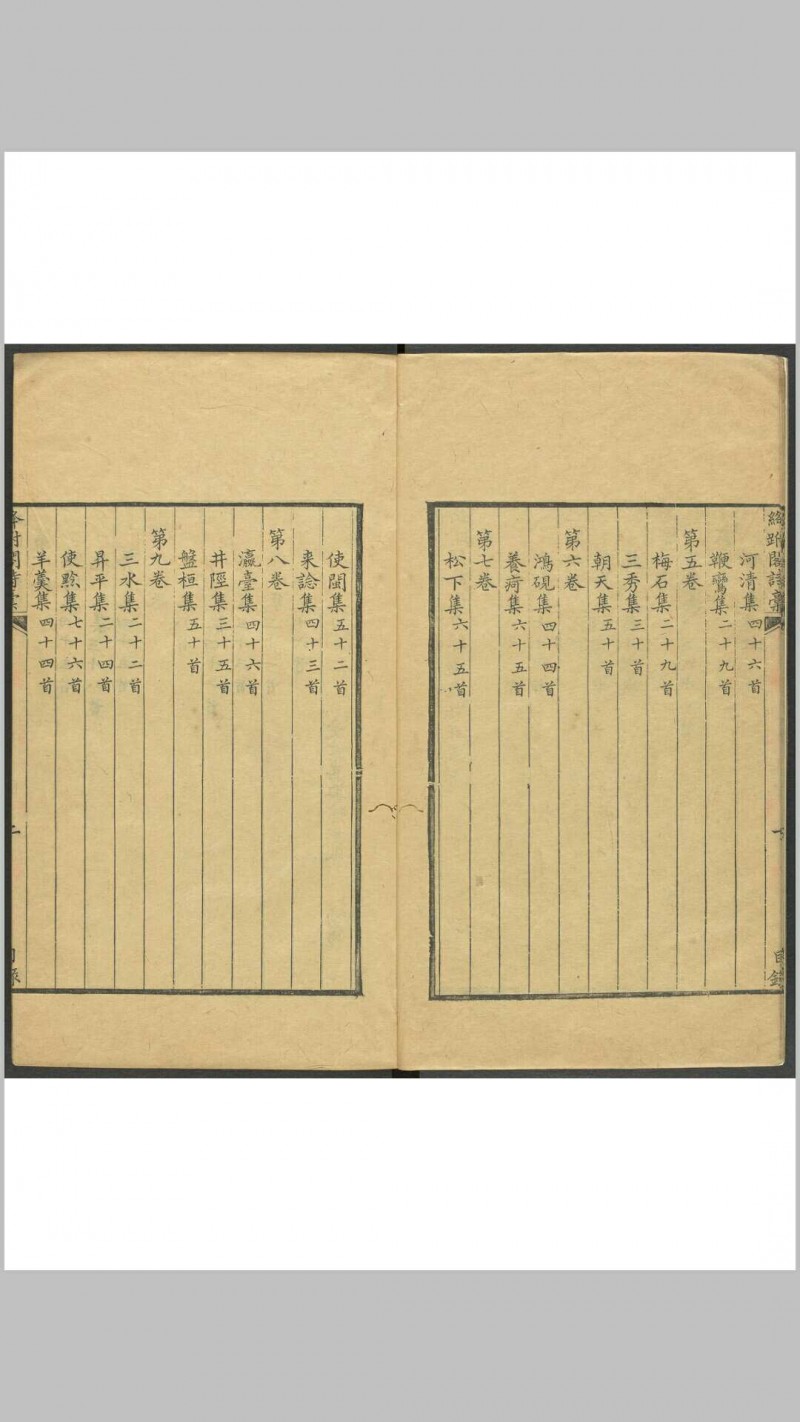 絳跗閣詩藁
一
目錄
河清集四十六首
鞭鸞集二十九首
第五卷
梅石集二十九首
三秀集三十首
朝天集五十首
第六卷
鴻硯集四十四首
養疴集六十五首
第七卷
松下集六十五首
使閩集五十二首
来諗集四十三首
第八卷
瀛臺集四十六首
井陘集三十五首
盤桓集五十首
第九卷
三水集二十二首
昇平集二十四首
使黔集七十六首
羊羹集四十四首
二